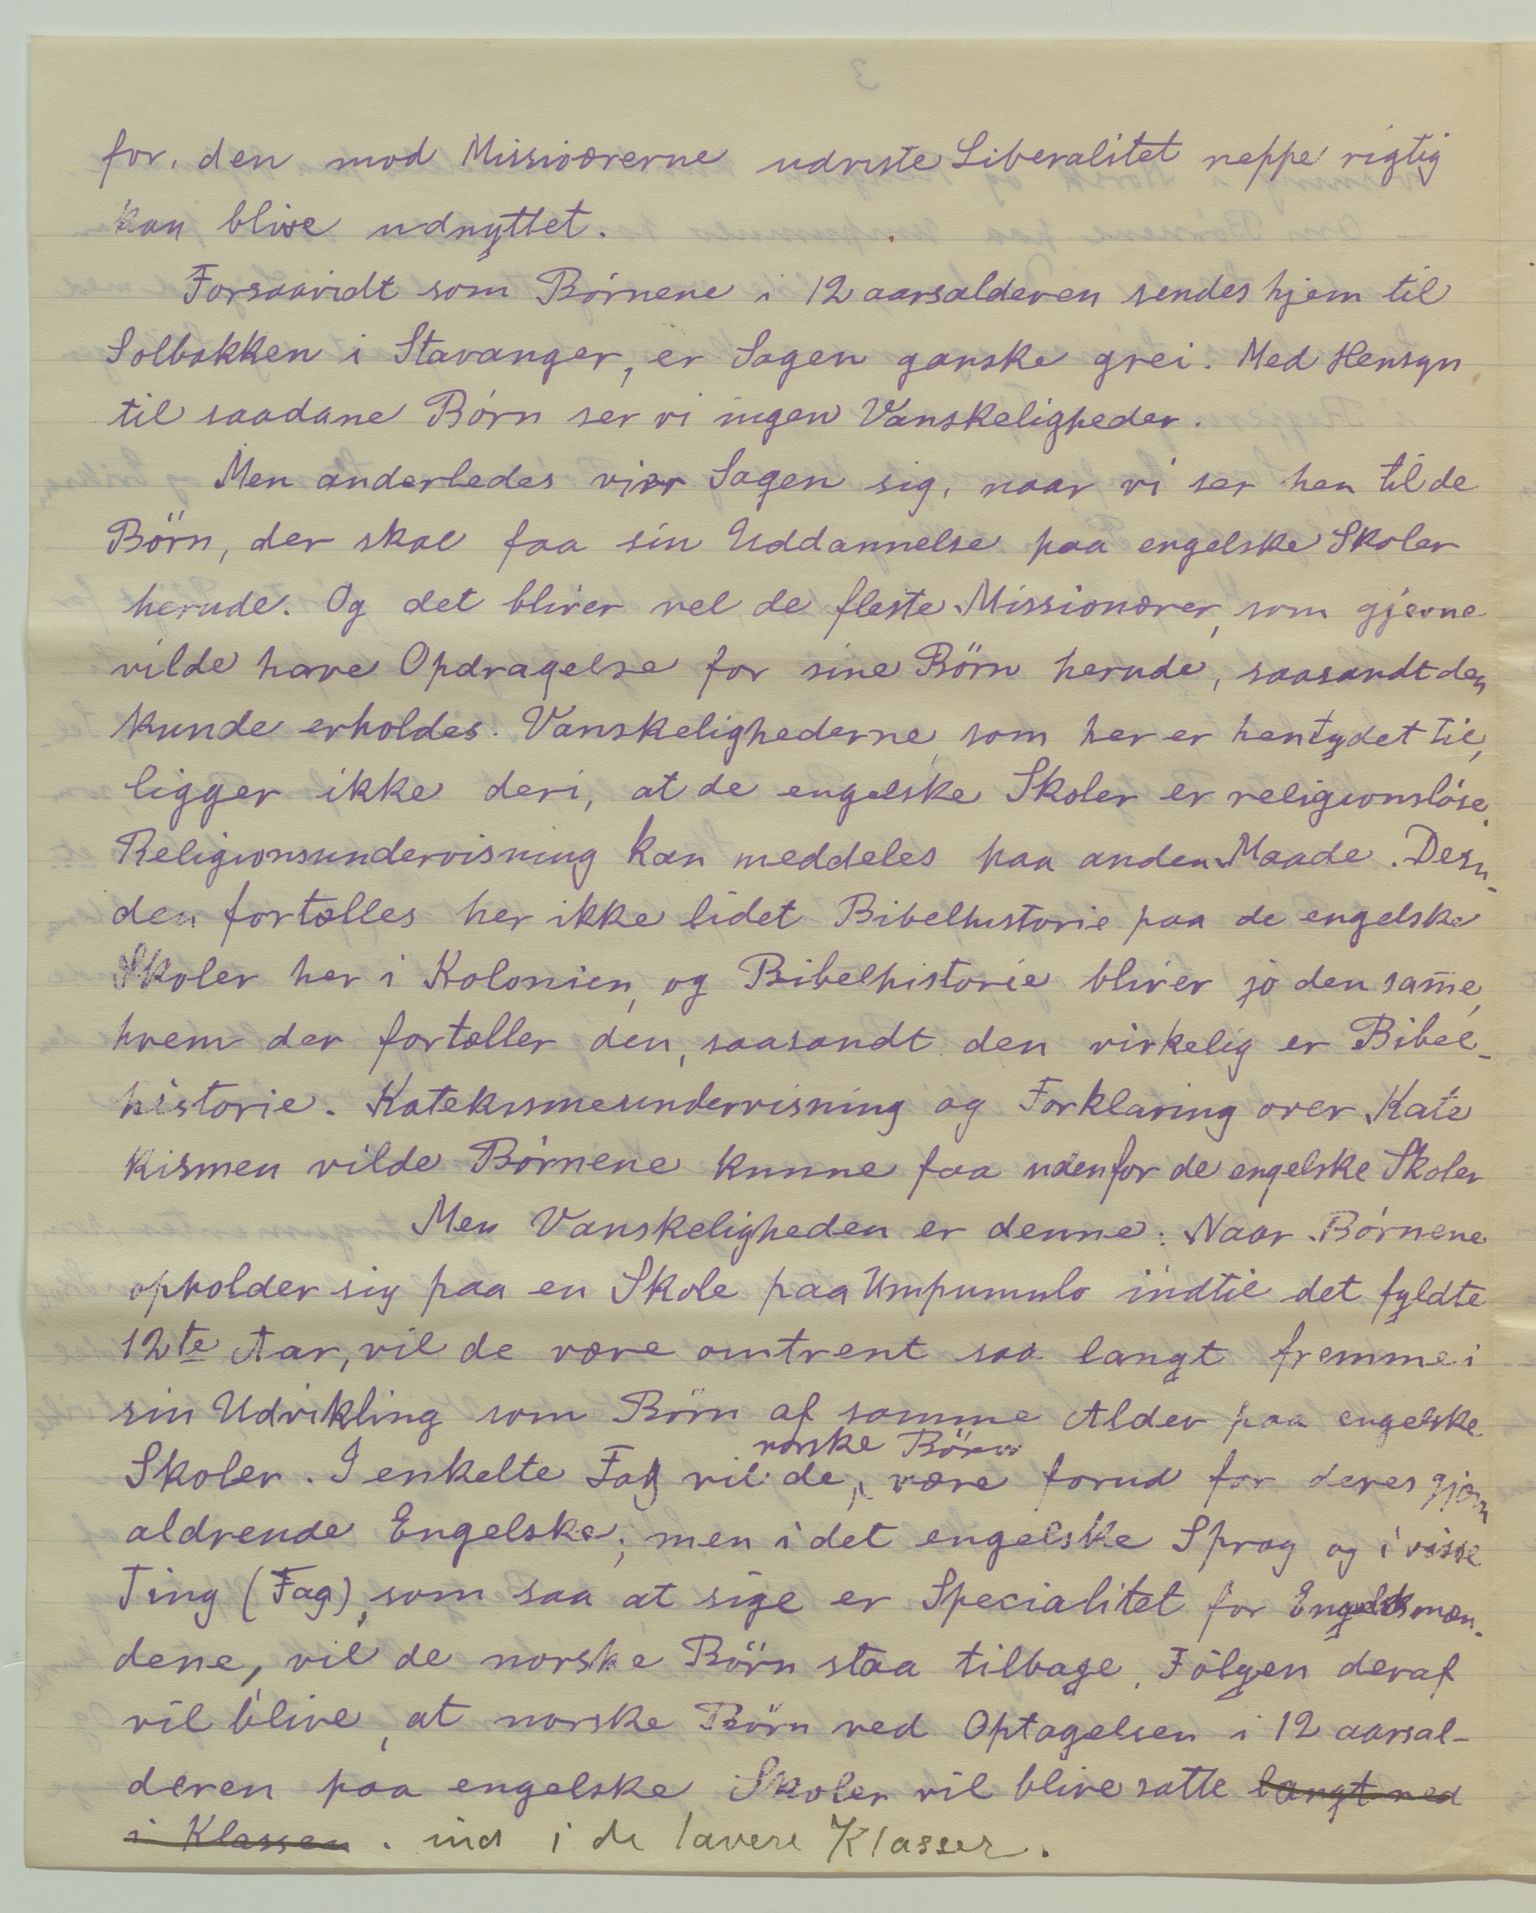 for, den mod Missionærerne udviste Liberalitet neppe rigtig
kan blive udnyttet.
Forsaavidt som Børnene i 12 aarsalderen sendes hjem til
Solbakken i Stavanger, er Sagen ganske grei. Med Hensyn
til saadane Børn ser vi ingen Vanskeligheder.
Men anderledes viser Sagen sig, naar vi ser hen til de
Börn, der skal faa sin Uddannelse paa engelske Skoler
herude. Og det bliver vel de fleste Missionærer, som gjerne
vilde have Opdragelse for sine Börn herude, saasandt den
kunde erholdes. Vanskelighederne, som her er hentydet til,
ligger ikke deri, at de engelske Skoler er religionsløse.
Religionsundervisning kan meddeles paa anden Maade. Desu-
den fortælles her ikke lidet Bibelhistorie paa de engelske
Skoler her i Kolonien, og Bibelhistorie bliver jo den sam̄e,
hvem der fortæller den, saasandt den virkelig er Bibel-
historie. Katekismeundervisning og Forklaring over Kate
kismen vilde Børnene kunne faa udenfor de engelske Skoler
Men Vanskeligheden er denne: Naar Børnene
opholder sig paa en Skole paa Umpumulo indtil det fyldte
12te Aar, vil de være omtrent saa langt fremme i
sin Udvikling som Börn af samme Alder paa engelske
Skoler. I enkelte Fag vil de, norske Börn være forud for deres gjævn
aldrende Engelske; men i det engelske Sprog og i visse
Ting (Fag), som saa at sige er Specialitet for Engelskmæn-
dene, vil de norske Börn staa tilbage. Følgen deraf
vil blive, at norske Börn ved Optagelsen i 12 aarsal-
deren paa engelske Skoler vil blive satte langt ned
i Klassen. ind i de lavere Klasser.